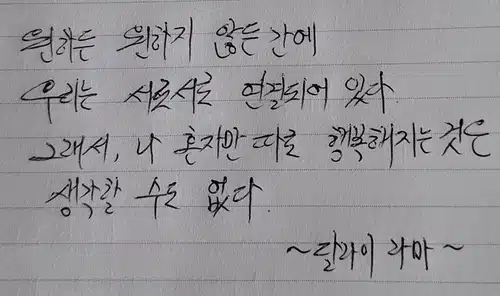 원하든 원하지 않든간에
우리는 서로서로 연결되어 있다.
그래서, 나 혼자만 따로 행복해지는 것은
생각할 수도 없다.
~달라이 라마~